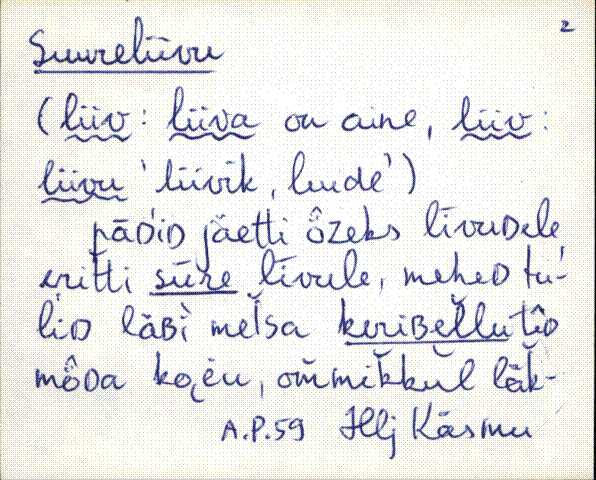 2
Suureliivu
(liiv : liiva on aine, liiv :
liivu 'liivik, luude')
pāDiD jäetti ȭzeks līvuDele
eritti sūre līvule, meheD tu-
liD läBì metsa keriBelluťîD
mȭDa koėu, ommikkul läk-
A.P.59 Hlj Käsmu